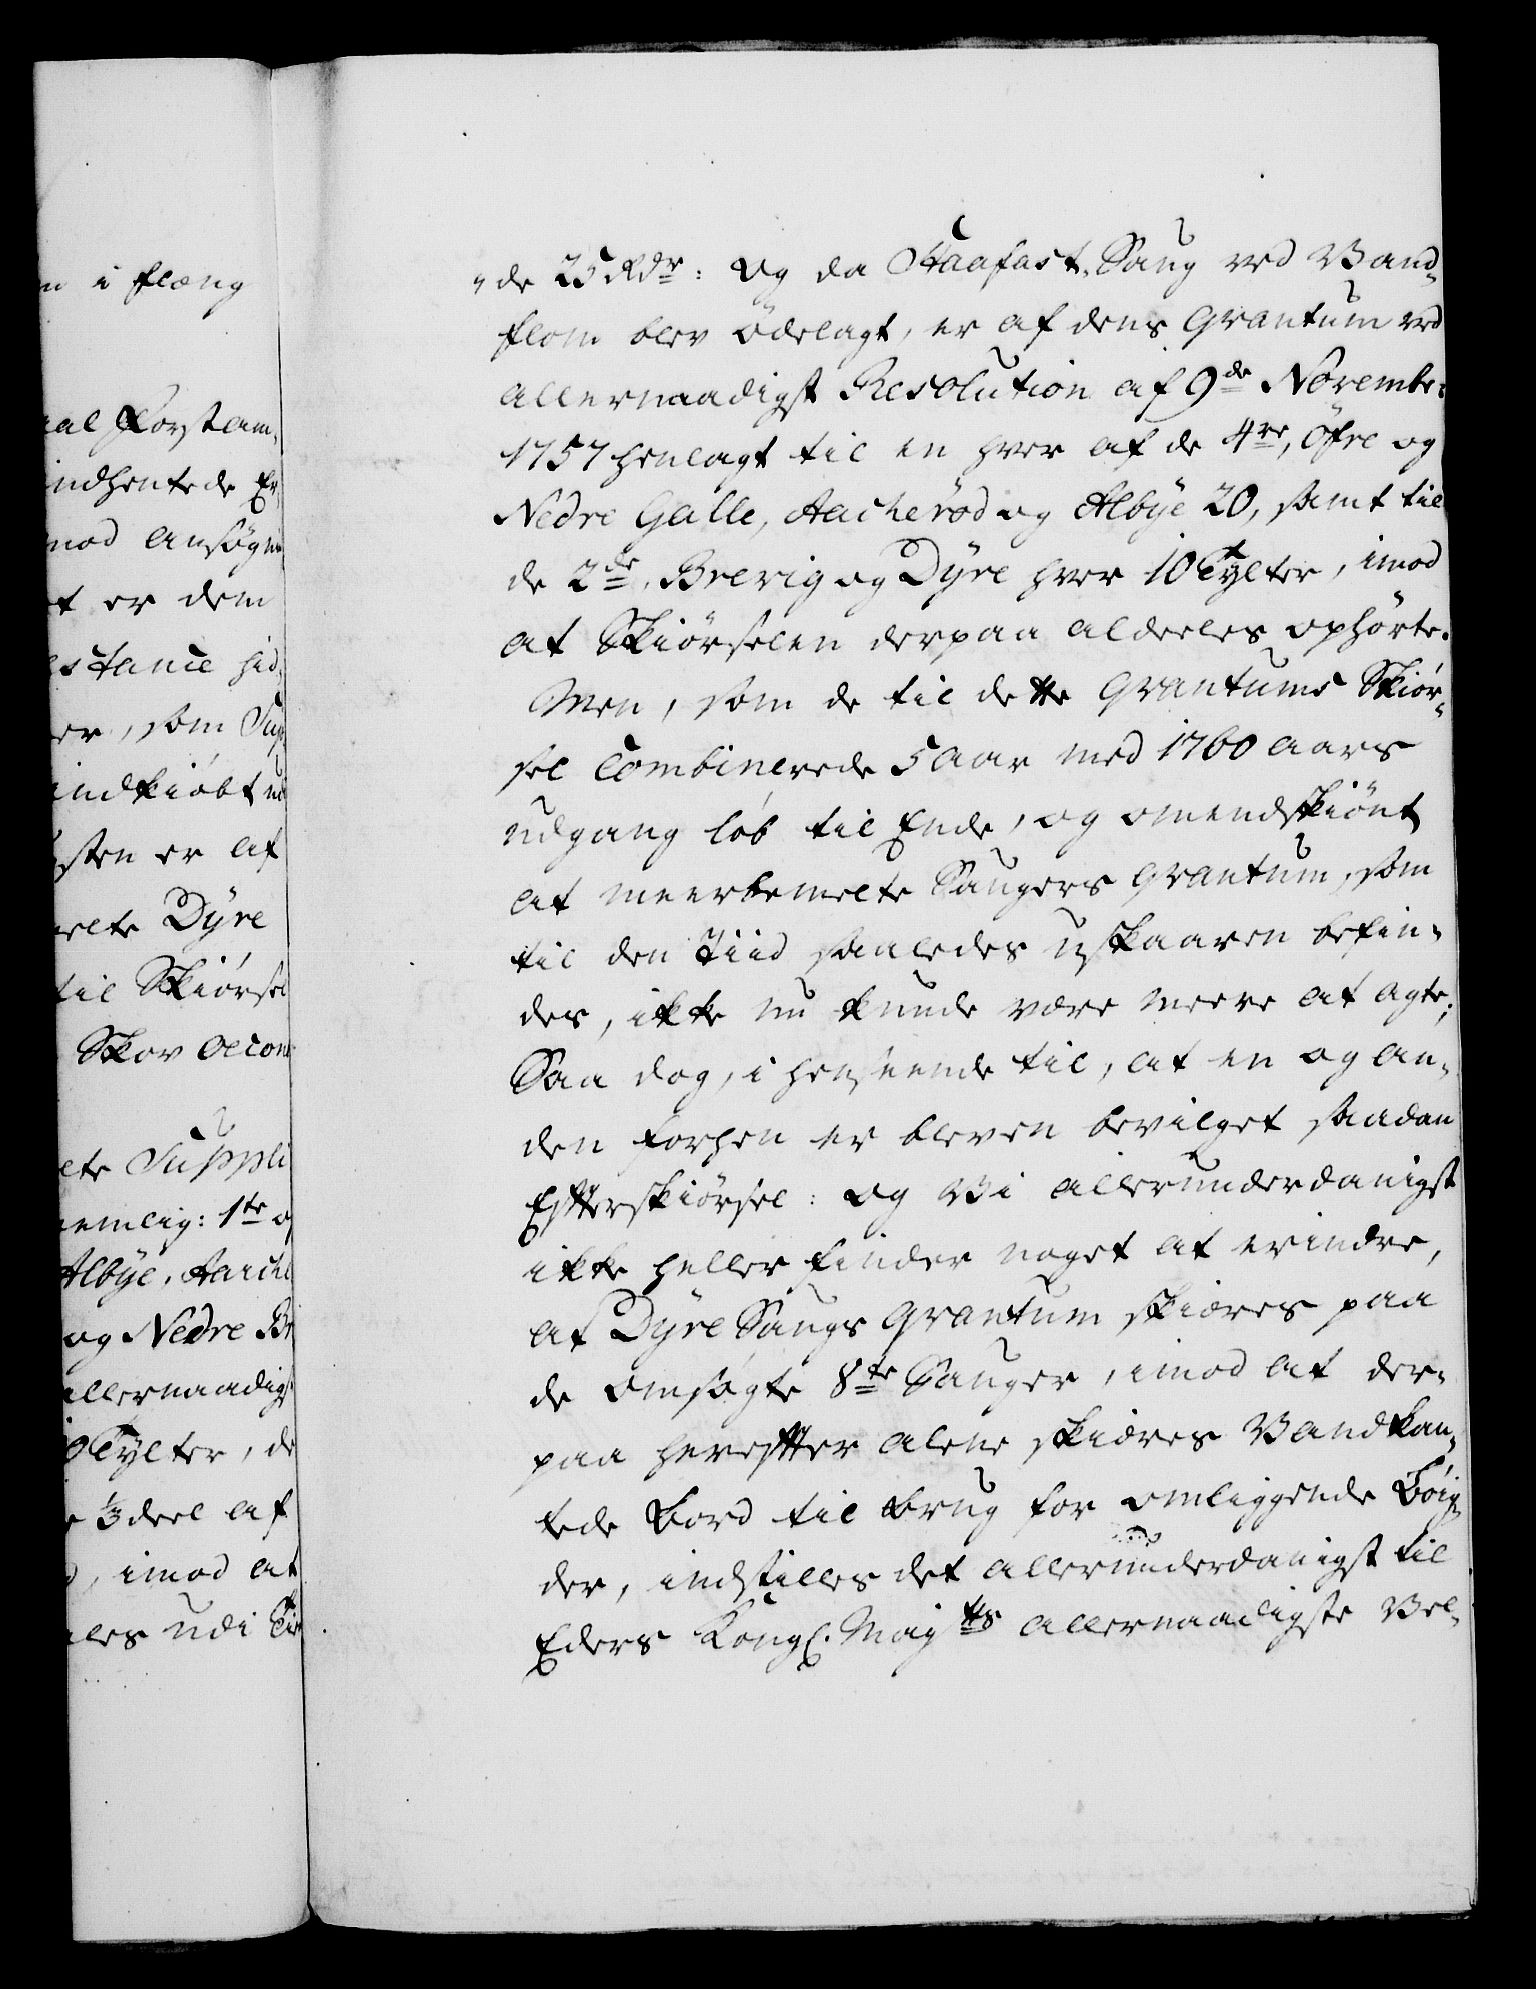 n i flæng
al Forstam¬
indhentede Er¬
mod ansøgni
t er dem
stance hid¬
er, som Sup¬
indkiøbt ud
sten er af
elte Dyre
til Skiørsel
Skov Oecono
elte Suppli
nemlig: 1te o
Albye, Aache
og Nedre Br
allernaadigs
0 Tylter, de
e 1/3 deel af
d, imod at
ales udi Tie
de 25 Rdr: Og da Haafast Saug ved Vand¬
flom blev ødelagt, er af dens Qvantum ved
allernaadigst Resolution af 9de Novembr:
1757 henlagt til en hver af de 4re, Øfre og
Nedre Galle, Aacherød og Albye 20, samt til
de 2de, Brevig og Dyre hver 10 Tylter, imod
at Skiørselen derpaa aldeeles ophørte.
Men, som de til dette Qvantums Skiør¬
sel Combinerede 5 Aar med 1760 Aars
udgang løb til Ende, og omendskiønt
at meerbemelte Saugers Qvantum, som
til den Tiid saaledes uskaaren befin¬
des, ikke nu kunde være meere at agte;
Saa dog, i henseende til, at en og an¬
den forhen er bleven bevilget saadan
Efterskiørsel: Og Vi allerunderdanigst
ikke heller finder noget at erindre,
at Dyre Saugs Qvantum skiæres paa
de omsøgte 8te Sauger, imod at der¬
paa herefter alene skiæres Vandkan¬
tede Bord til brug for omliggende Bøig¬
der, indstilles det allerunderdanigst til
Eders Kongl. Majts allernaadigste Vel¬